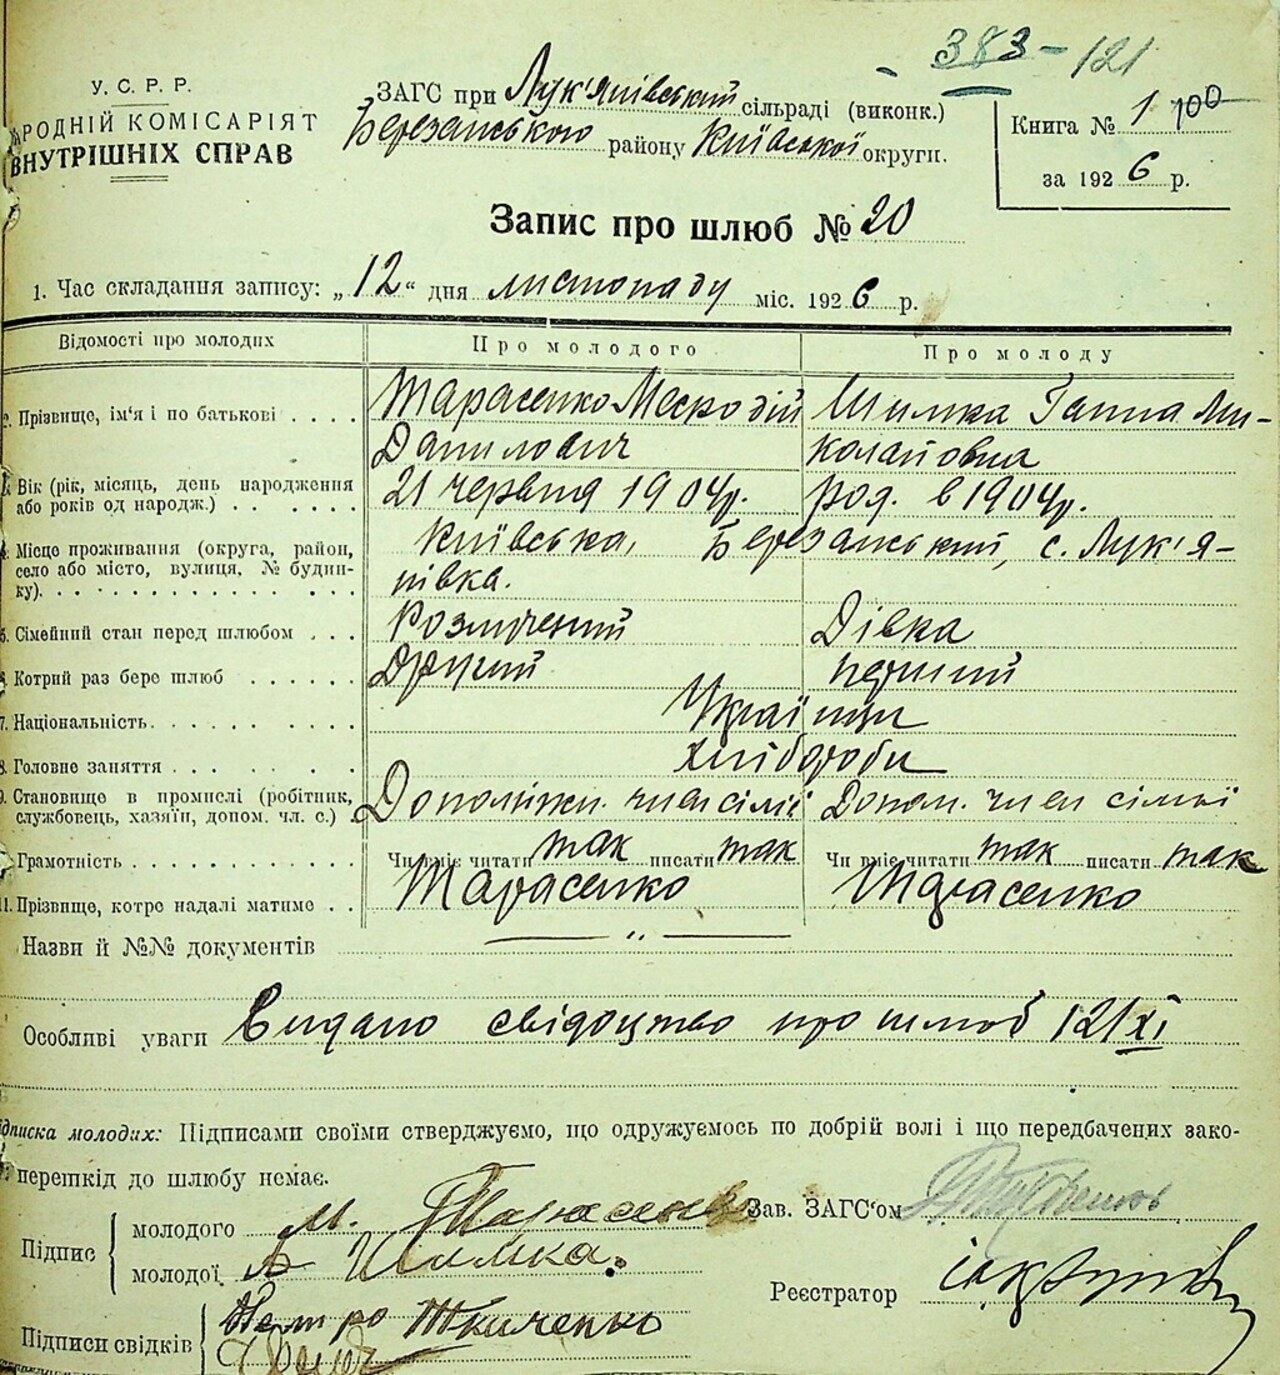 383 - 121
У. С. Р. Р.
НАРОДНІЙ КОМІСАРІЯТ
ВНУТРІШНІХ СПРАВ
ЗАГС при Лук'янівський сільраді (виконк.)
Березанського району Київської округи.
Книга № 1 100
за 1926 р.
Запис про шлюб № 20
1. Час складання запису: „12“ дня листопаду міс. 1926 р.
Відомості про молодих
Про молодого
Про молоду
2. Прізвище, ім'я і по батькові . . . .
Тарасенко Мефодій
Данилович
Шимка Ганна Ми-
колайовна
Вік (рік, місяць, день народження
або років од народж.) . . . . . .
21 червня 1904р.
род. в 1904р.
Місце проживання (округа, район,
село або місто, вулиця, № будин-
ку). . . . . . . . . . . . . . . .
Київська, Березанський, с. Лук'я-
нівка.
5. Сімейний стан перед шлюбом . . .
Розлучений
Дівка
Котрий раз бере шлюб . . . . . .
Другий
перший
7. Національність. . . . . . . . .
Українци
8. Головне заняття . . . . . . . .
хлібороби
9. Становище в промислі (робітник,
службовець, хазяїн, допом. чл. с.) .
Допоміжн. член сімї
Допом. член сімьї
Грамотність . . . . . . . . . . .
Чи вміє читати так писати так
Чи вміє читати так писати так
11. Прізвище, котре надалі матиме . .
Тарасенко
Тарасенко
Назви й №№ документів
Особливі уваги Видано свідоцтво про шлюб 12/XI
Підписка молодих: Підписами своїми стверджуємо, що одружуємось по добрій волі і що передбачених зако-
перешкід до шлюбу немає.
Підпис
молодого М. Тарасенко
молодої Шимка.
Зав. ЗАГС'ом
Реєстратор
Підписи свідків
Петро Ткаченко